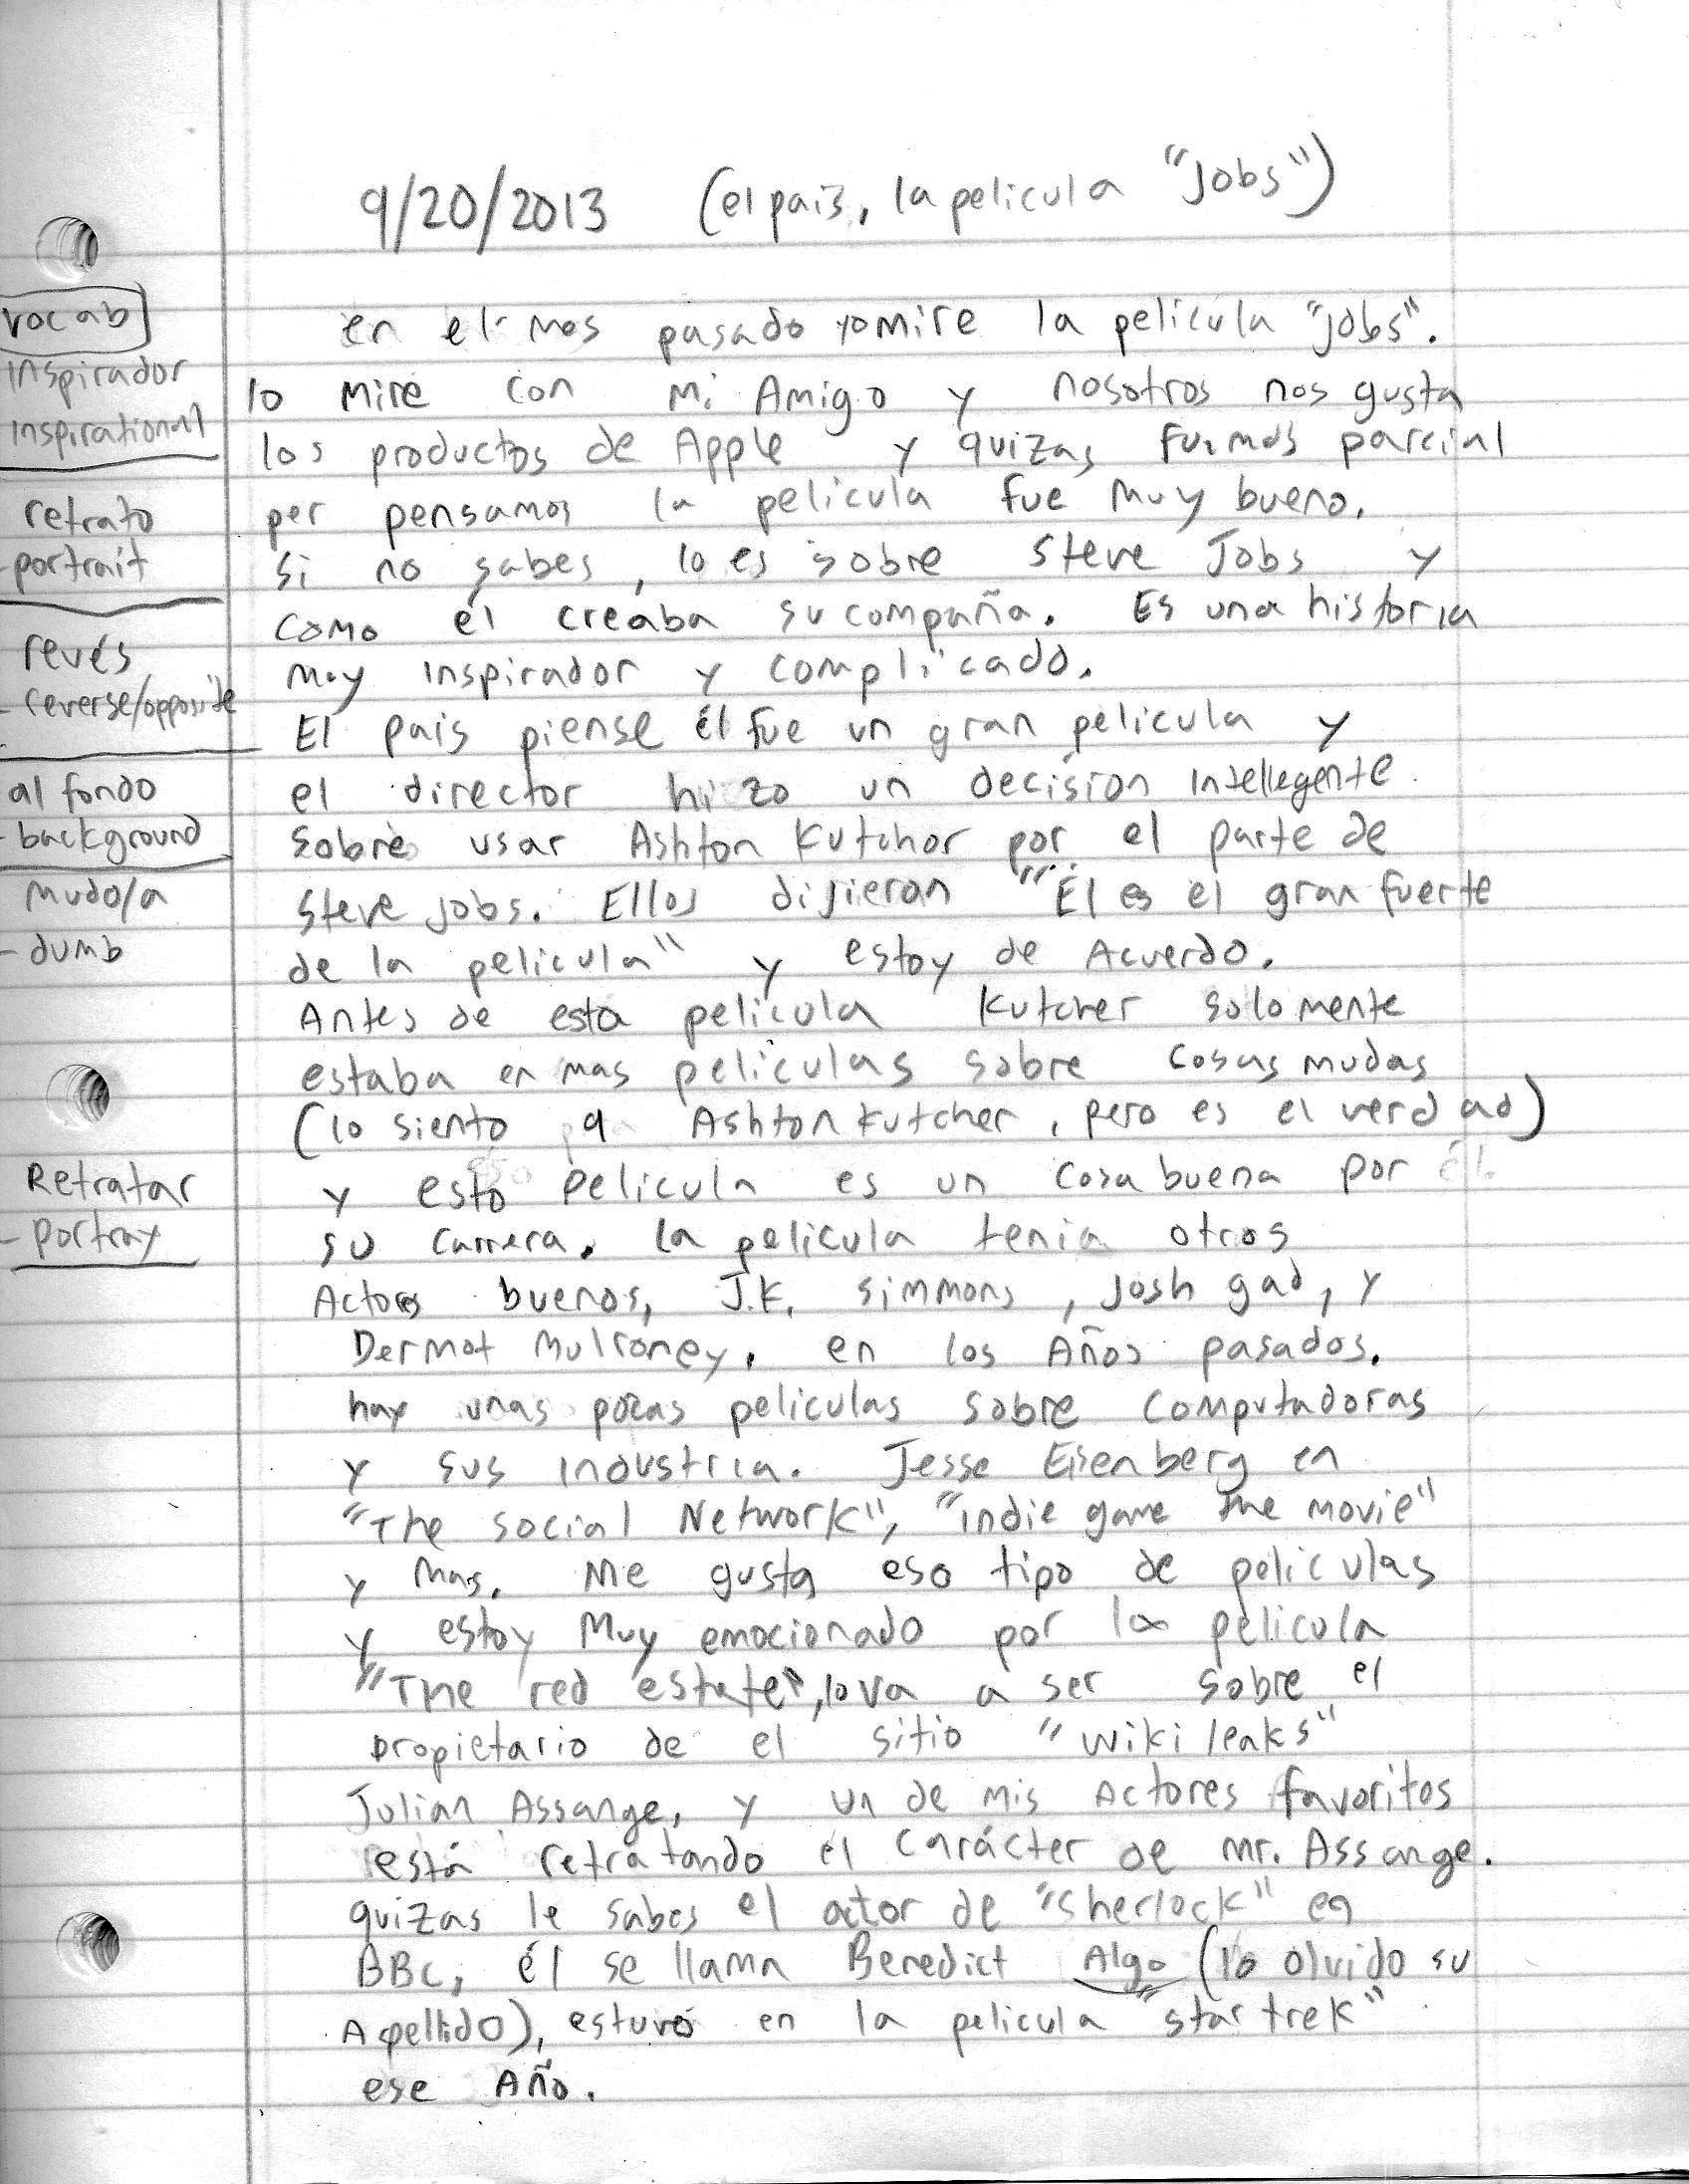 9/20/2013 (el pais, la pelicula "Jobs")
vocab
inspirador
inspirational
retrato
-portrait
revés
- reverse/opposite
al fondo
-background
mudo/a
- dumb
Retratar
- portray
en el mes pasado yo mire la pelicula "jobs".
lo mire con mi Amigo y nosotros nos gusta
los productos de Apple y quizas fuimos parcial
per pensamos la pelicula fue muy bueno.
si no sabes, lo es sobre Steve Jobs y
como él creaba su compaña. Es una historia
muy inspirador y complicado.
El pais piense él fue un gran pelicula y
el director hizo un decision intellegente
sobre usar Ashton Kutchor por el parte de
Steve jobs. Ellos dijieron "Él es el gran fuerte
de la pelicula" y estoy de Acuerdo.
Antes de esta pelicula Kutcher solomente
estaba en mas peliculas sobre cosas mudas
(lo siento a Ashton Kutcher, pero es el verdad)
y esto pelicula es un cosa buena por
su carrera. la pelicula tenia otros
Actores buenos, J.K. simmons, Josh gad, y
Dermot Mulroney. en los Años pasados.
hay unas pocas peliculas sobre computadoras
y sus industria. Jesse Eisenberg en
"The social Network", "indie game the movie"
y mas. Me gusta eso tipo de peliculas
y estoy Muy emocionado por la pelicula
"The red estate", lo va a ser sobre el
propietario de el sitio "wikileaks"
Julian Assange, y un de mis Actores favoritos
está retratando el carácter de mr. Assange.
quizas le sabes el actor de "Sherlock" en
BBC, él se llama Benedict Algo (lo olvido su
Apellido), estuvo en la pelicula "star trek"
ese Año.